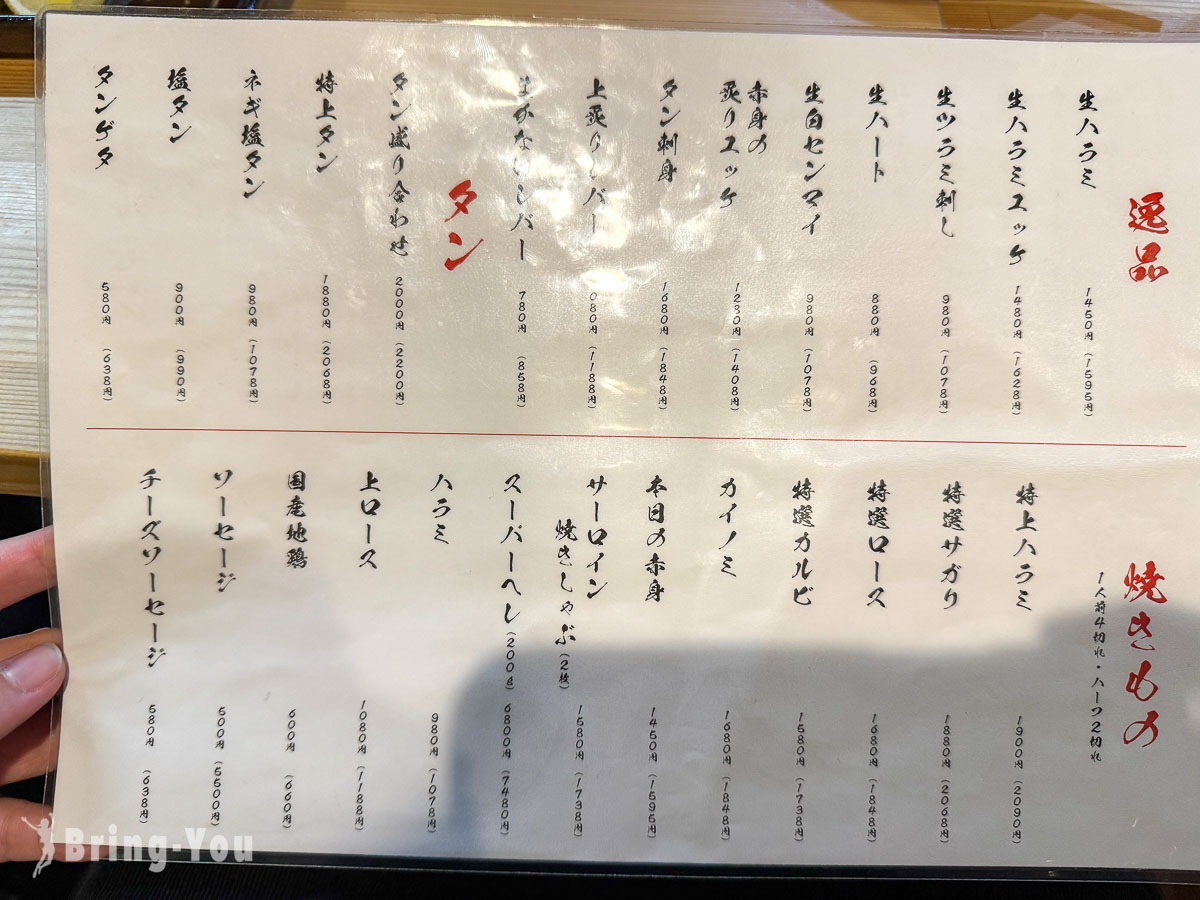 逸品
生ハラミ 1450円 (1595円)
生ハラミユッケ 1480円 (1628円)
生ツラミ刺し 980円 (1078円)
生ハート 880円 (968円)
生白センマイ 980円 (1078円)
赤身の
炙りユッケ 1280円 (1408円)
タン刺身 1680円 (1848円)
上炙りレバー 080円 (1188円)
生かないレバー 780円 (858円)
タン
タン盛り合わせ 2000円 (2200円)
特上タン 1880円 (2068円)
ネギ塩タン 980円 (1078円)
塩タン 900円 (990円)
タンゲタ 580円 (638円)
焼きもの
1人前4切れ・ハーフ2切れ
特上ハラミ 1900円 (2090円)
特選サガリ 1880円 (2068円)
特選ロース 1680円 (1848円)
特選カルビ 1580円 (1738円)
カイノミ 1680円 (1848円)
本日の赤身 1450円 (1595円)
サーロイン
焼きしゃぶ (2枚) 1580円 (1738円)
スーパーヘレ (200g) 6800円 (7480円)
ハラミ 980円 (1078円)
上ロース 1080円 (1188円)
国産地鶏 600円 (660円)
ソーセージ 500円 (5500円)
チーズソーセージ 580円 (638円)
Bring-You